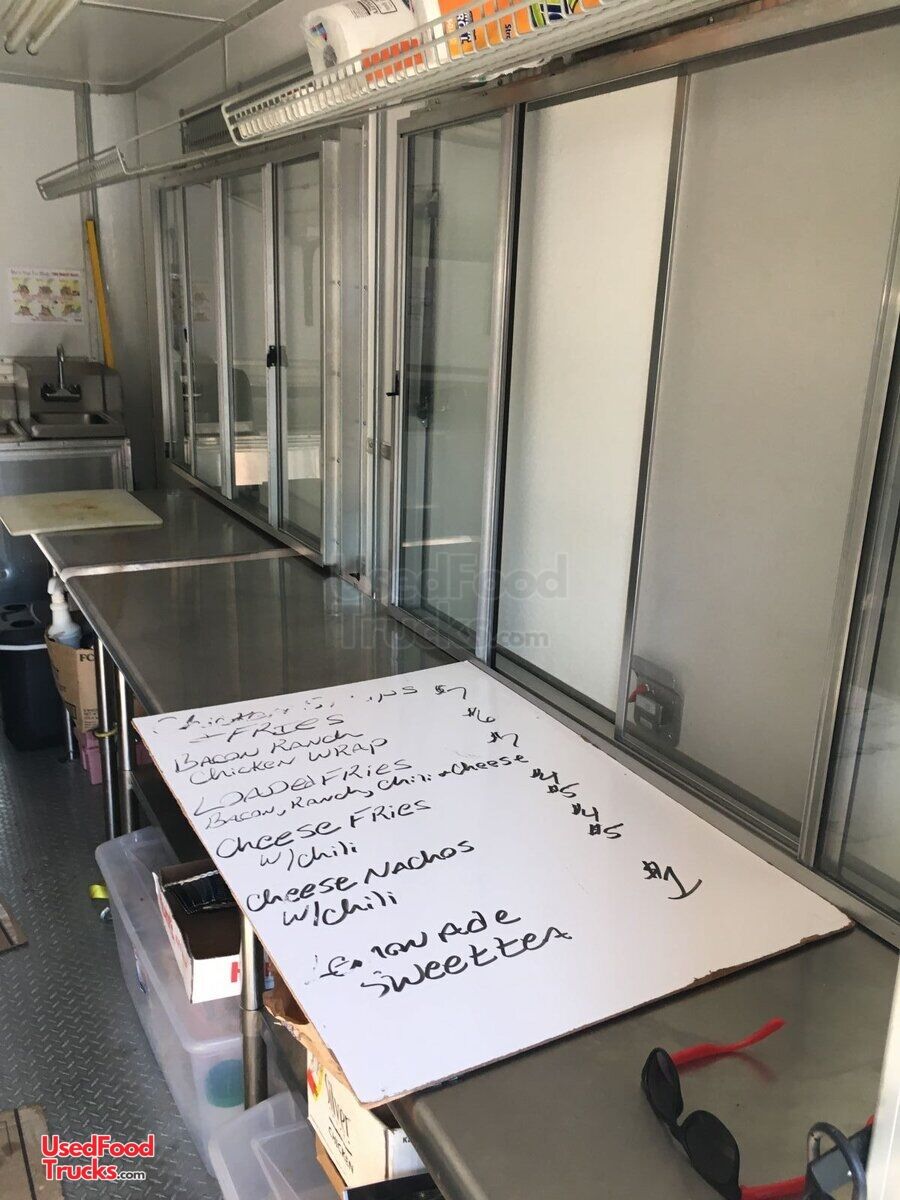 $7
+ FRIES
BACON RANCH $6
CHICKEN WRAP
LOADED FRIES $7
BACON, RANCH, CHILI + CHEESE
CHEESE FRIES $4
W/CHILI $5
CHEESE NACHOS $4
W/CHILI $5
LEMON ADE $1
SWEETTEA
UsedFood
Trucks.com
UsedFood
Trucks.com
Silver
CHICKEN